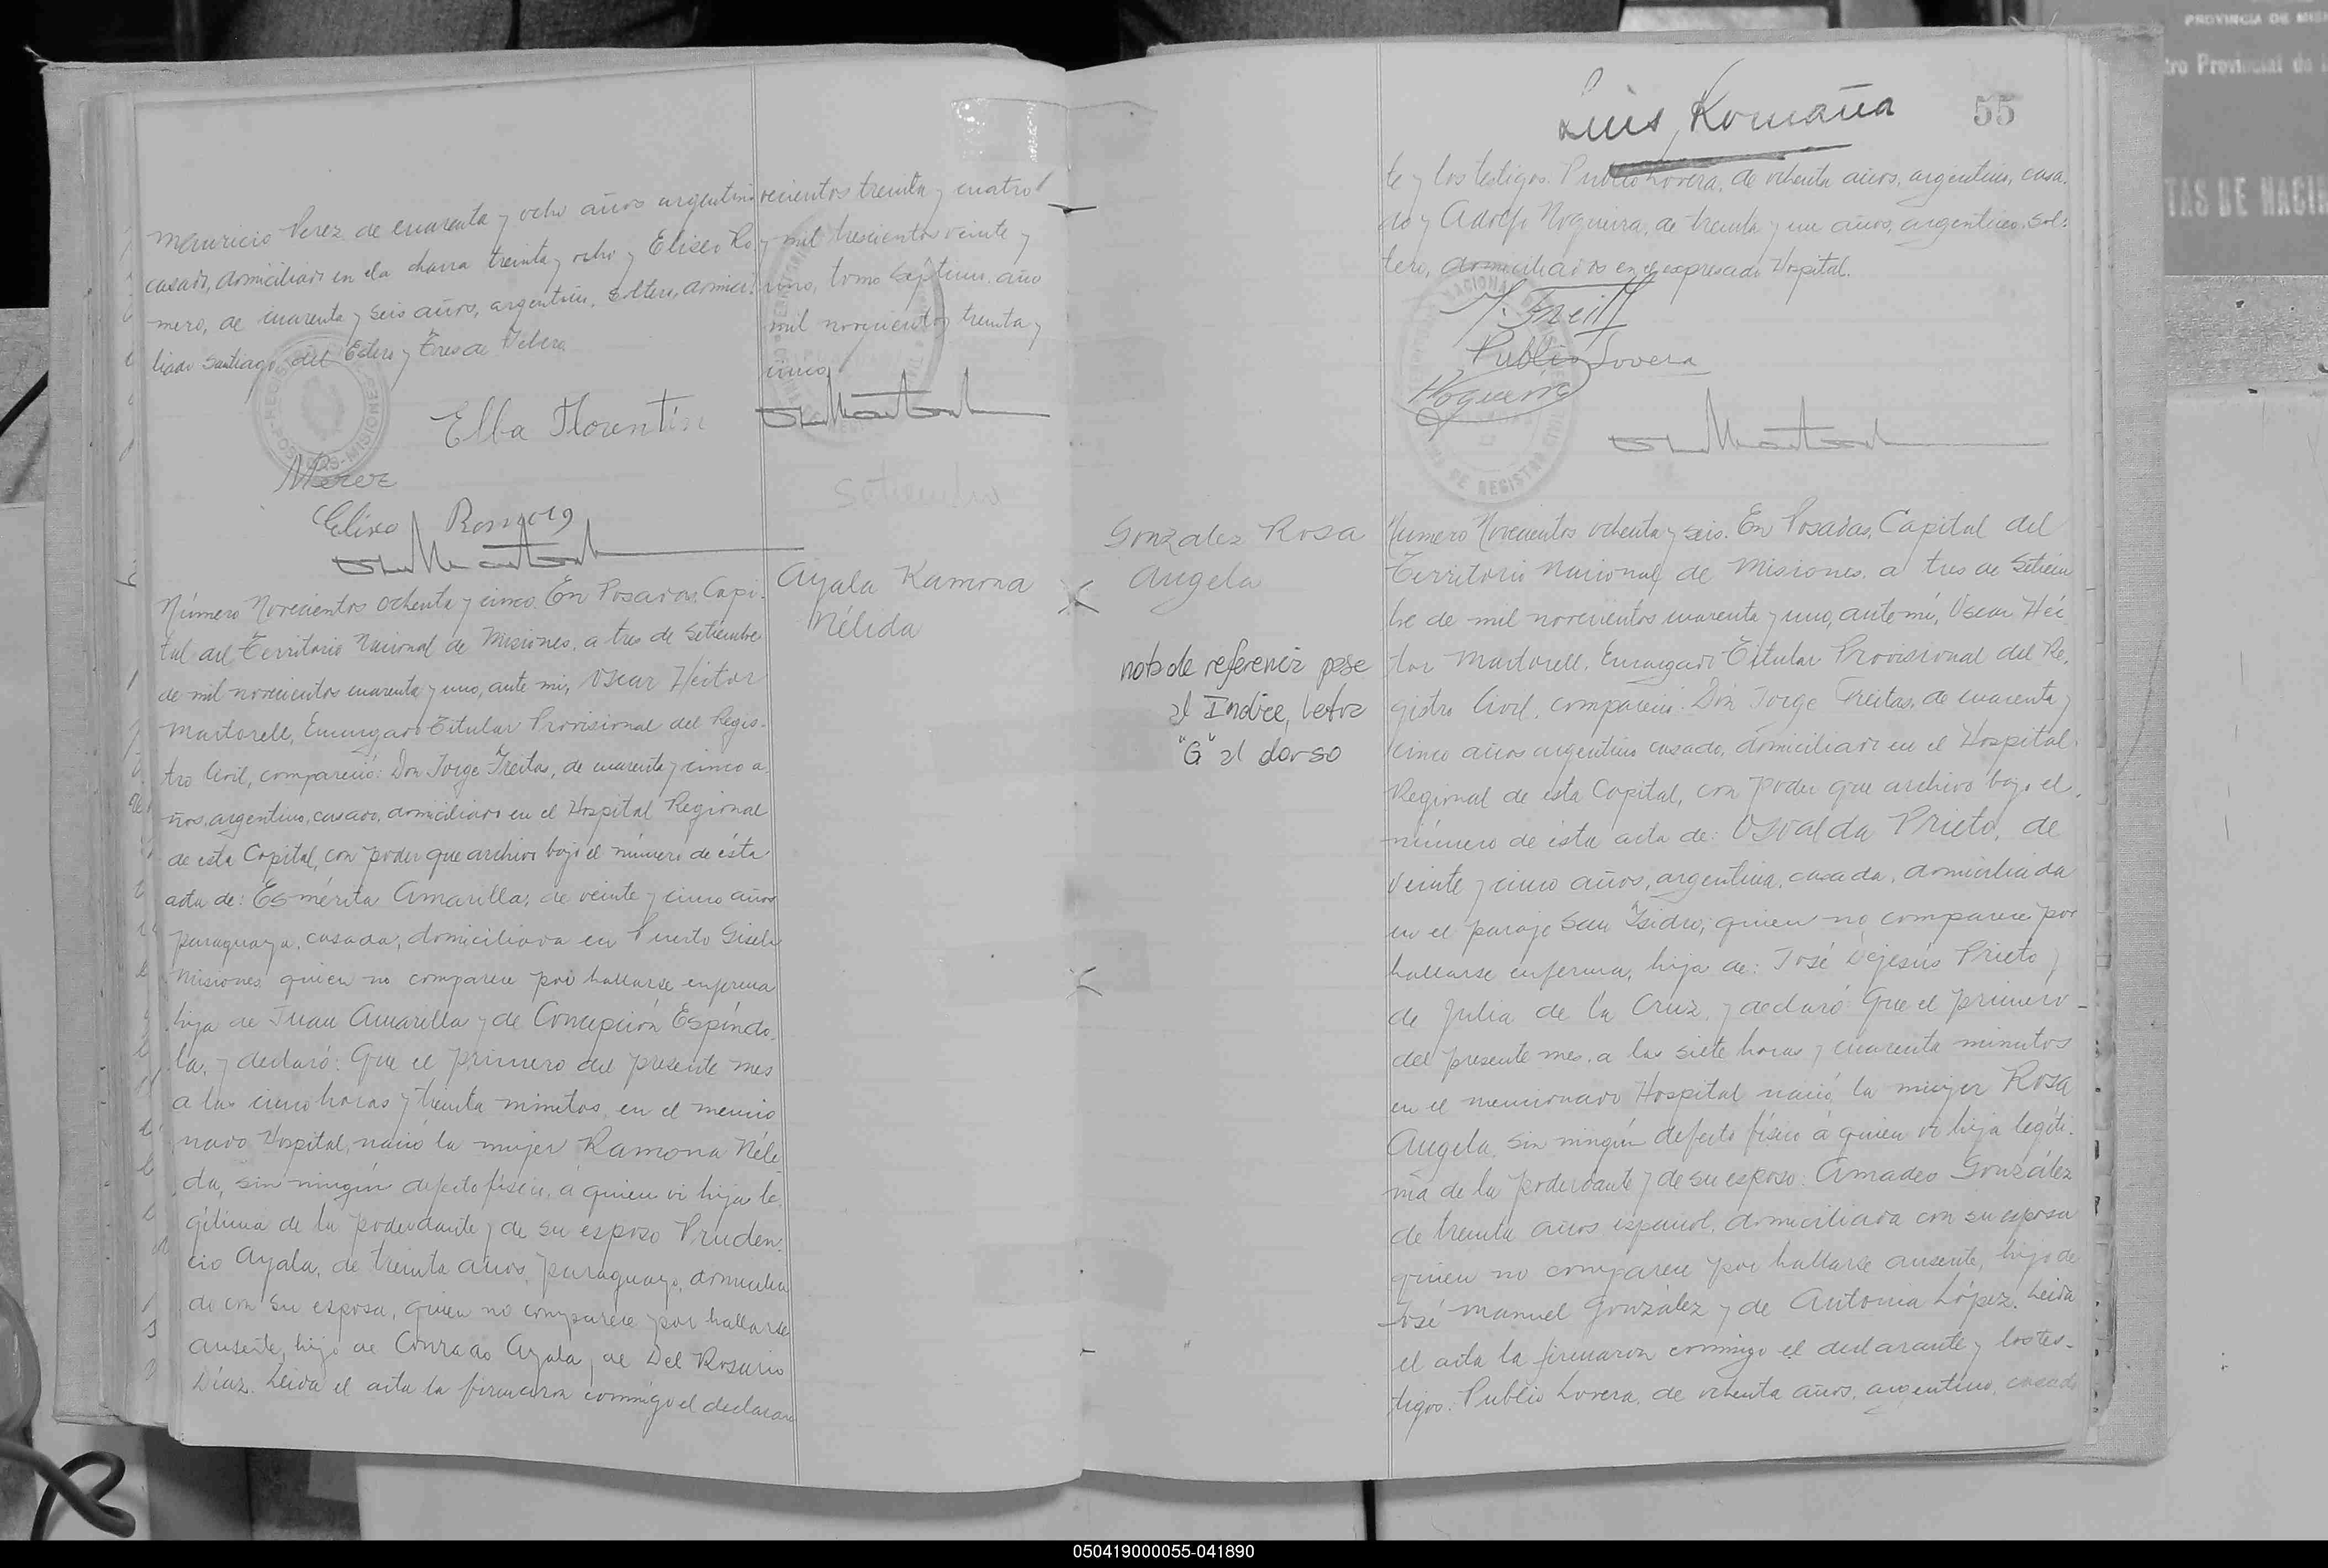 Mauricio Perez de cuarenta y ocho años argentino
casado, domiciliado en la chacra treinta y ocho y Eliseo Ro
mero, de cuarenta y seis años, argentino, soltero, domici
liado Santiago del Estero y Tres de Febrero
Elba Florentín
MPerez
Eliseo Romero
vecientos treinta y cuatro
y mil trescientos veinte y
uno, tomo séptimo, año
mil novecientos treinta y
cinco
Setiembre
Ayala Ramona
Nélida
Número Novecientos ochenta y cinco. En Posadas, Capi-
tal del Territorio Nacional de Misiones, a tres de Setiembre
de mil novecientos cuarenta y uno, ante mi, Oscar Héctor
Martorell, Encargado Titular Provisional del Regis-
tro Civil, compareció: Don Jorge Freitas, de cuarenta y cinco a
ños, argentino, casado, domiciliado en el Hospital Regional
de esta Capital, con poder que archivo bajo el número de ésta
acta de: Esmérita Amarilla; de veinte y cinco años
paraguaya, casada, domiciliada en Puerto Gisela
Misiones quien no comparece por hallarse enferma
hija de Juan Amarilla y de Concepción Espíndo
la, y declaró: Que el primero del presente mes
a las cinco horas y treinta minutos, en el mencio
nado Hospital, nació la mujer Ramona Néle
da, sin ningún defecto físico, a quien vi hija le
gítima de la poderdante y de su esposo Pruden
cio Ayala, de treinta años, paraguayo, domicilia
do con su esposa, quien no comparece por hallarse
ausente, hijo de Conrado Ayala y de Del Rosario
Díaz. Leida el acta la firmaron conmigo el declaran
Luis Romaña
55
te y los testigos. Publio Lovera, de ochenta años, argentino, casa-
do y Adolfo Nogueira, de treinta y un años, argentino, sol-
tero, domiciliados en el expresado Hospital.
J. Freitas
Publio Lovera
Nogueira
Gonzalez Rosa
Angela
nota de referencia pase
al Indice, letra
"G" al dorso
Número Novecientos ochenta y seis. En Posadas, Capital del
Territorio Nacional de Misiones, a tres de Setiem
bre de mil novecientos cuarenta y uno, ante mí, Oscar Héc
tor Martorell, Encargado Titular Provisional del Re-
gistro Civil, compareció: Don Jorge Freitas, de cuarenta y
cinco años argentino casado, domiciliado en el Hospital
Regional de esta Capital, con poder que archivo bajo el
número de ésta acta de: Osvalda Prieto, de
veinte y cinco años, argentina, casada, domiciliada
en el paraje San Isidro; quien no comparece por
hallarse enferma, hija de: José Dejesús Prieto y
de Julia de la Cruz, y declaró: Que el primero
del presente mes, a las siete horas y cuarenta minutos
en el mencionado Hospital nació la mujer Rosa
Angela, sin ningún defecto físico a quien vi hija legíti-
ma de la poderdante y de su esposo: Amadeo González
de treinta años español, domiciliada con su esposa
quien no comparece por hallarse ausente, hijo de
José Manuel González y de Antonia López. Leida
el acta la firmaron conmigo el declarante y los tes-
tigos. Publio Lovera, de ochenta años, argentino, casado
PROVINCIA DE MISI
tro Provincial de
TAS DE NACIM
050419000055-041890